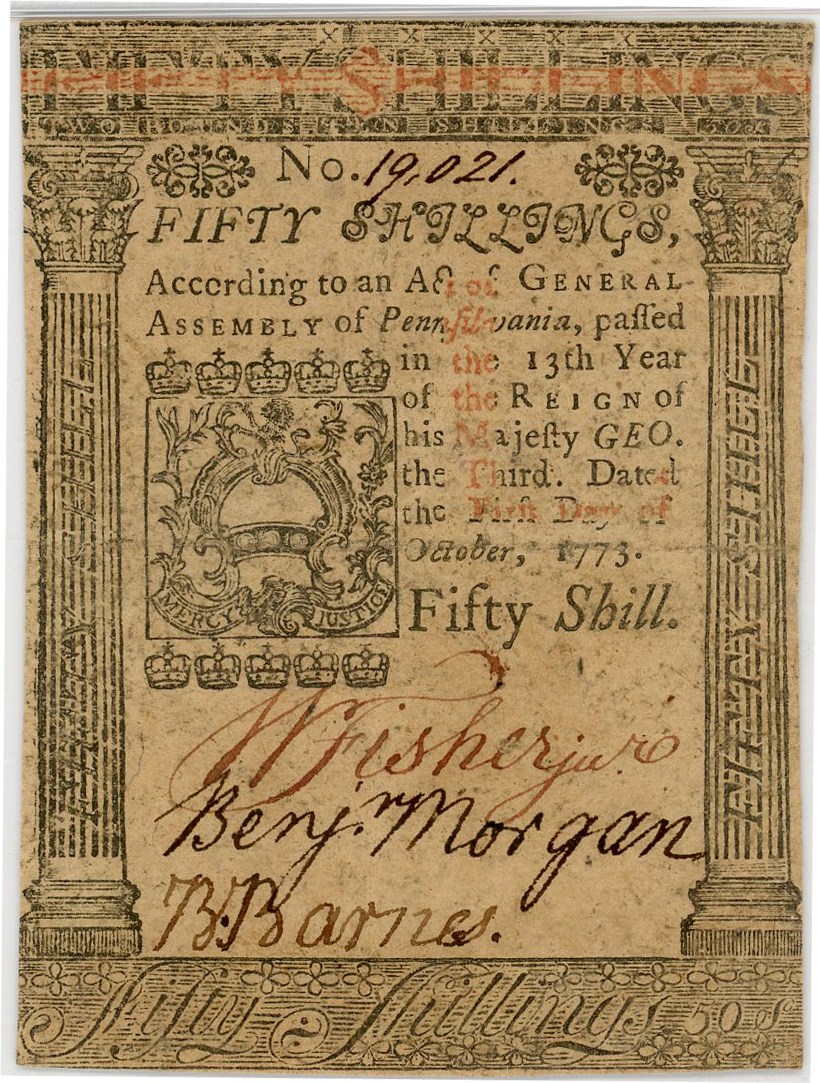 FIFTY SHILLINGS
TWO POUNDS, TEN SHILLINGS. 50s.
No. 19,021.
FIFTY SHILLINGS,
According to an Act of GENERAL
ASSEMBLY of Pennſilvania, paſſed
in the 13th Year
of the REIGN of
his Majeſty GEO.
the Third. Dated
the Firſt Day of
October, 1773.
MERCY JUSTICE
Fifty Shill.
W Fisher junr
Benj.n Morgan
B. Barnes.
FIFTY SHILL
FIFTY SHILL
Fifty Shillings. 50 s